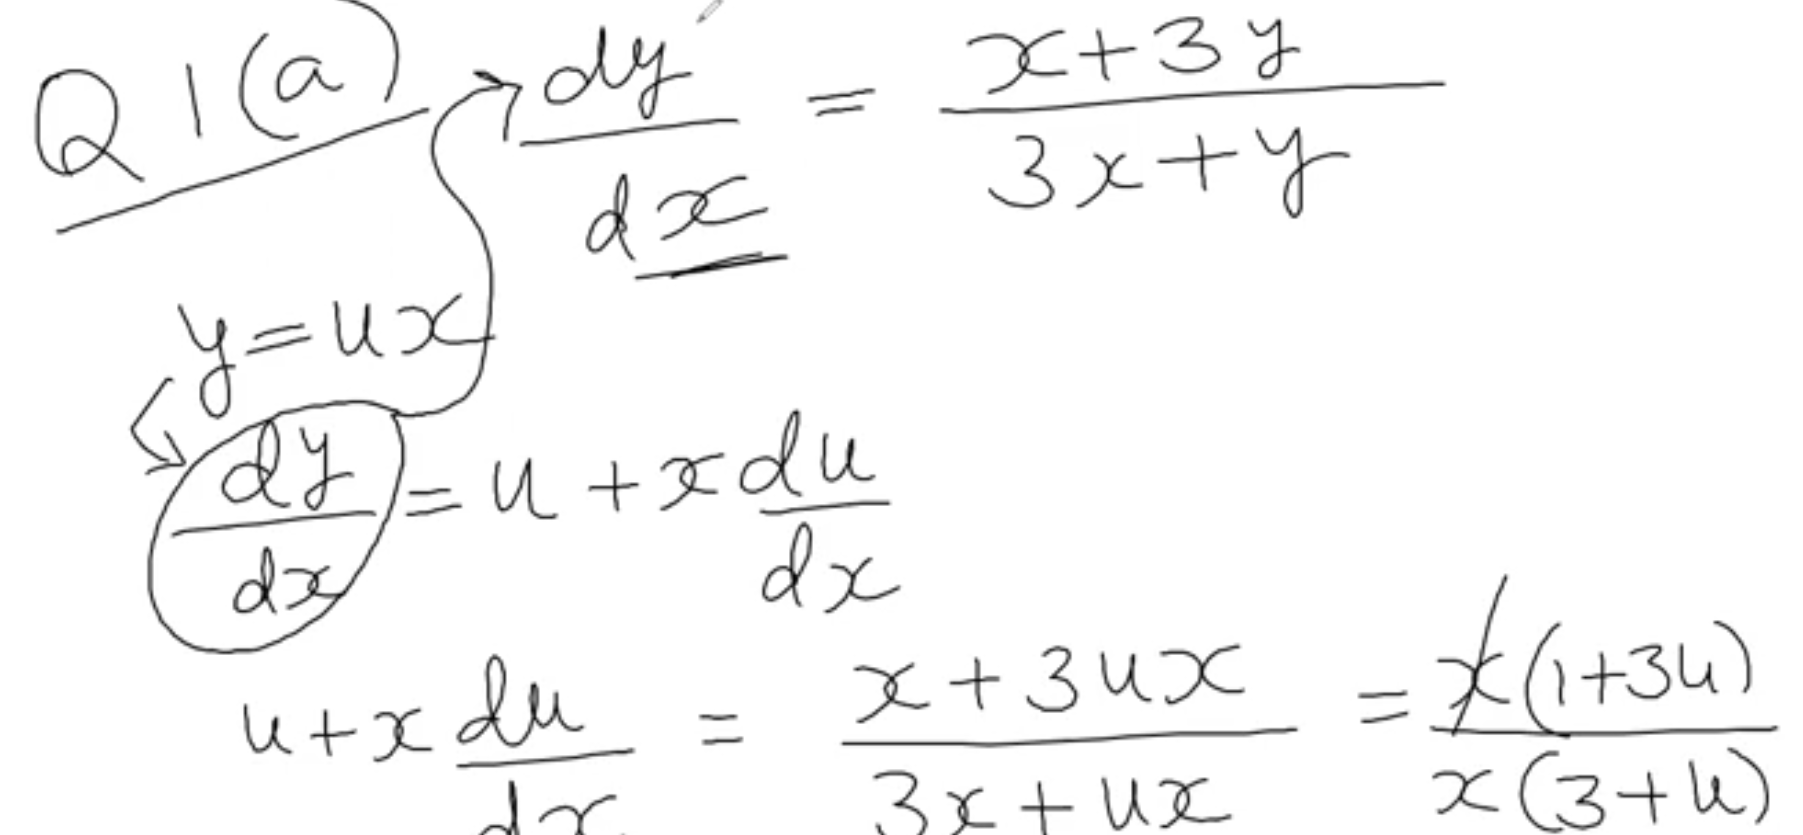 Q 1(a) dy/dx = (x+3y)/(3x+y)
y = ux
dy/dx = u + x du/dx
u + x du/dx = (x+3ux)/(3x+ux) = x(1+3u)/x(3+u)